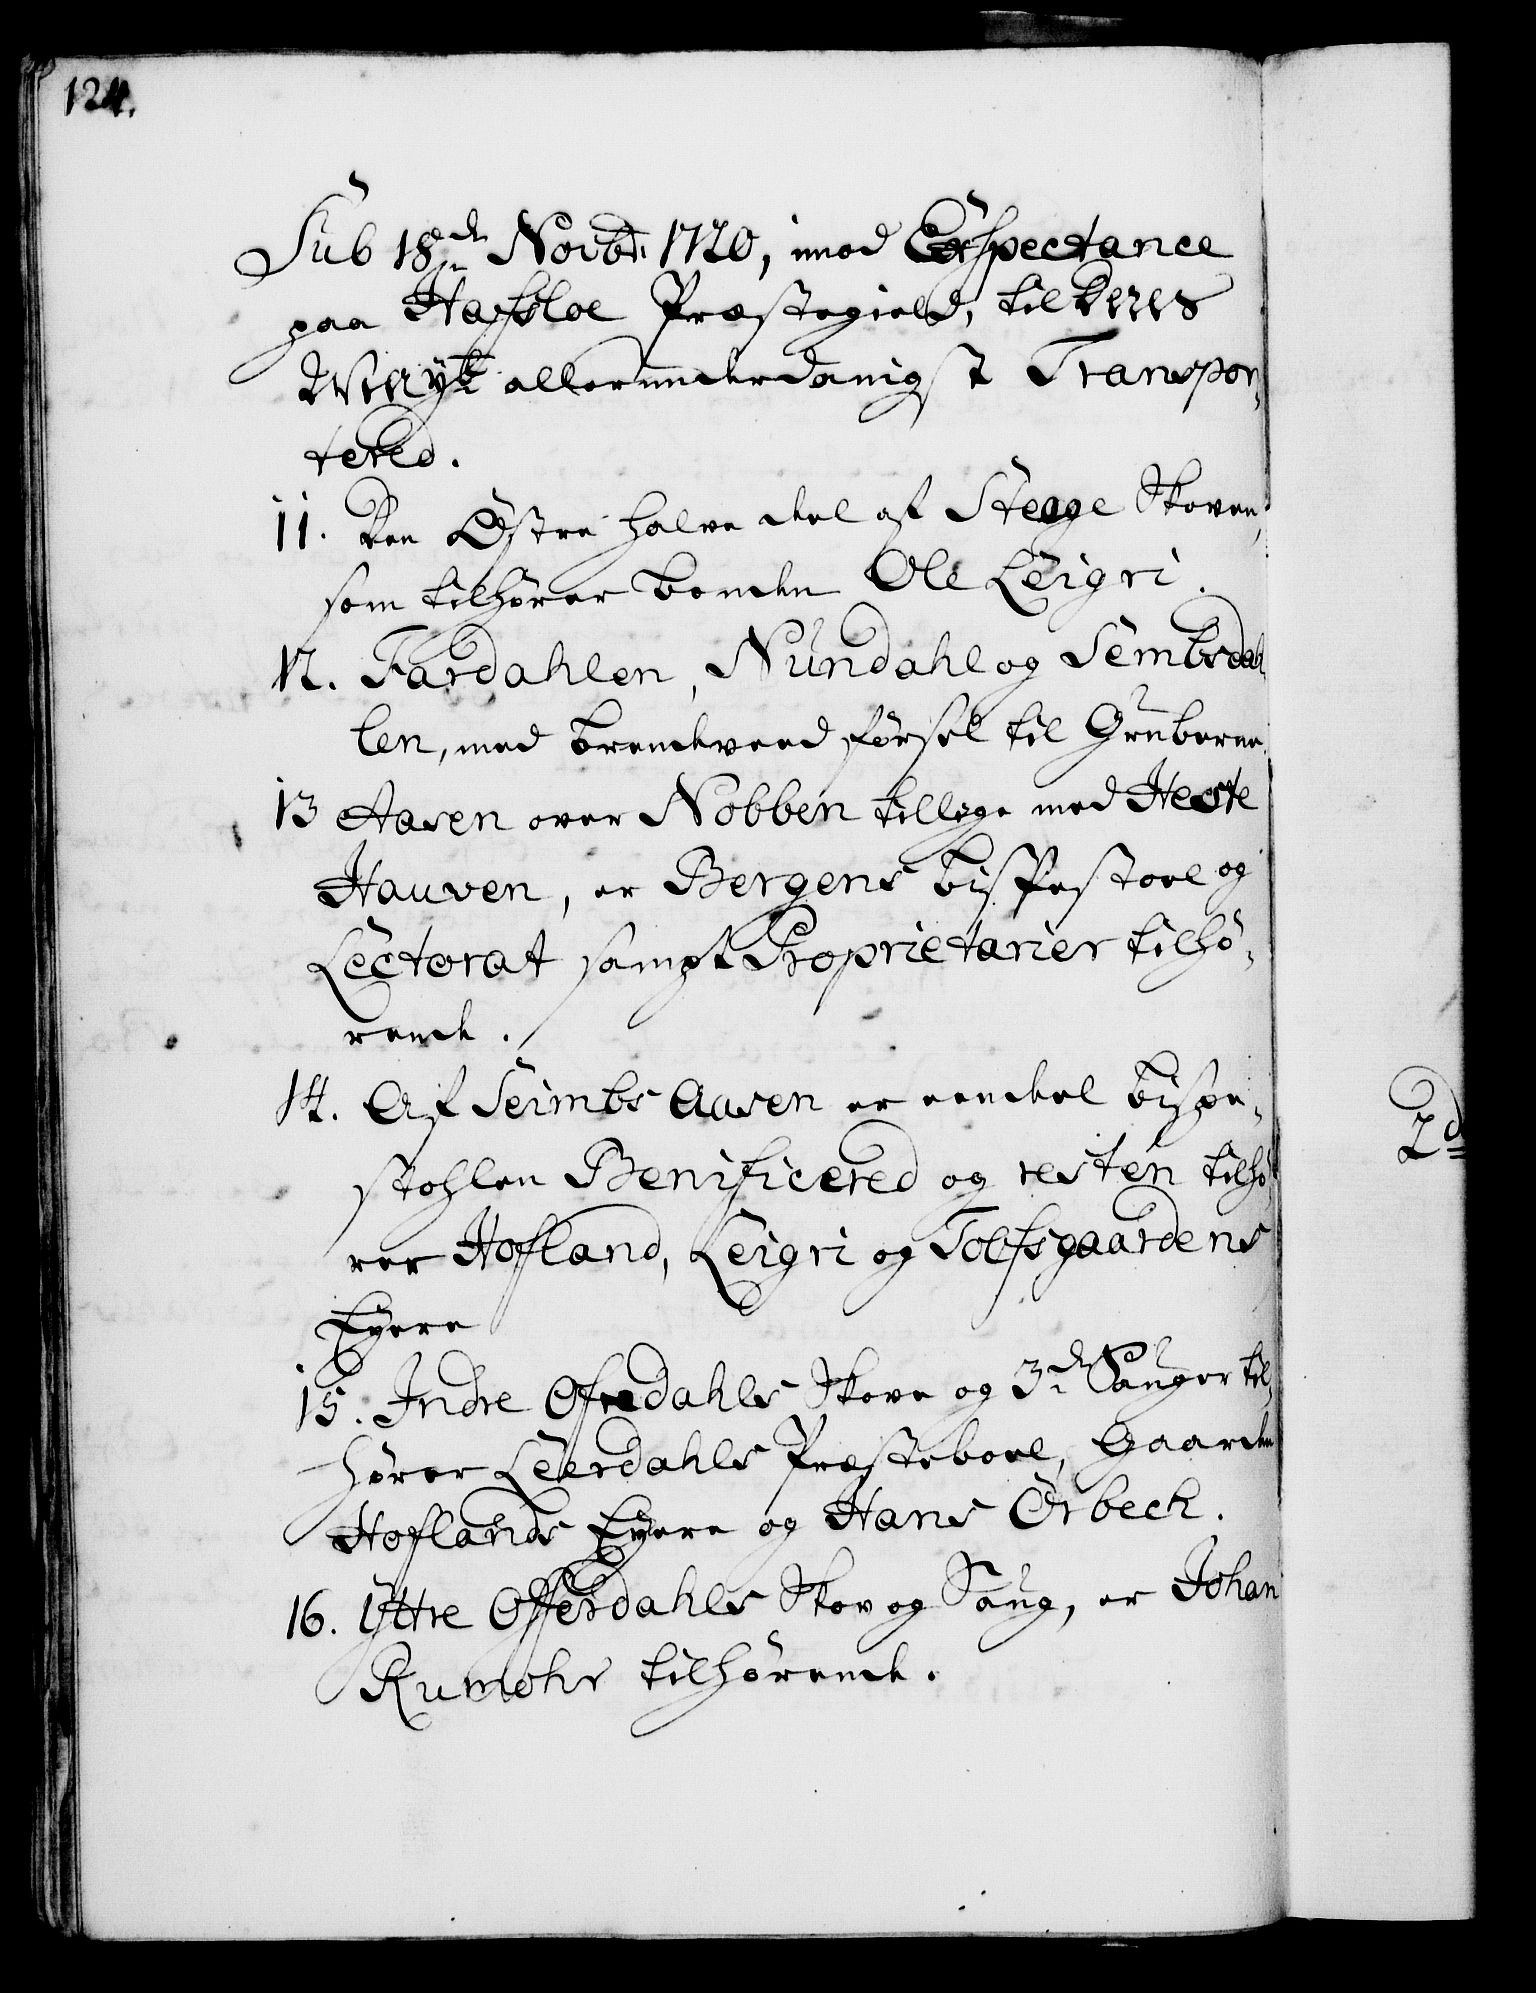 124.
Sub 18de Novbr: 1720, imod Exspectance
paa Hafsloe Præstegield, til Deres
Mayt allerunderdanigst Transpor-
tered.
11. Den Østre halve deel af Stegge Skoven,
som tilhører bonden Ole Leigri.
12. Fardahlen, Nundahl og Sembsdah-
len, med brendeveed førsel til Gruberne.
13 Aasen over Nobben tillige med Heste
Hauven, er Bergens bispestoel og
Lectorat sampt Proprietarier tilhø-
rende.
14. Af Seimbs Aasen er een deel bispe-
stohlen Benificered og resten tilhø-
rer Hofland, Leigri og Tolfsgaardens
Eyere
15. Indre Ofredahls Skove og 3de Sauger til-
hører Leerdahls Præsteboel, Gaarden
Hoflands Eyere og Hans Ørbech.
16. Ÿttre Offerdahls Skov og Saug, er Johan
Rumohr tilhørende.
2de